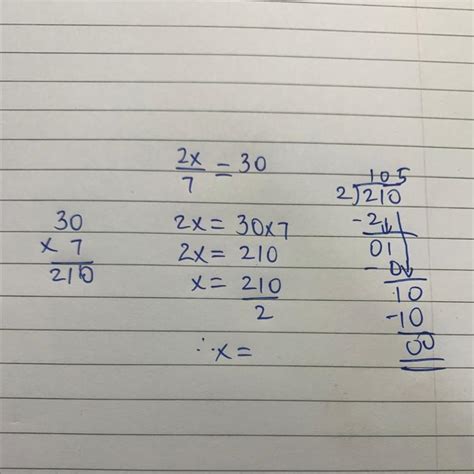 2x/7 = 30
2x = 30x7
2x = 210
x = 210/2
∴x =
30
x 7
210
105
2)210
-2
01
-0
10
-10
00